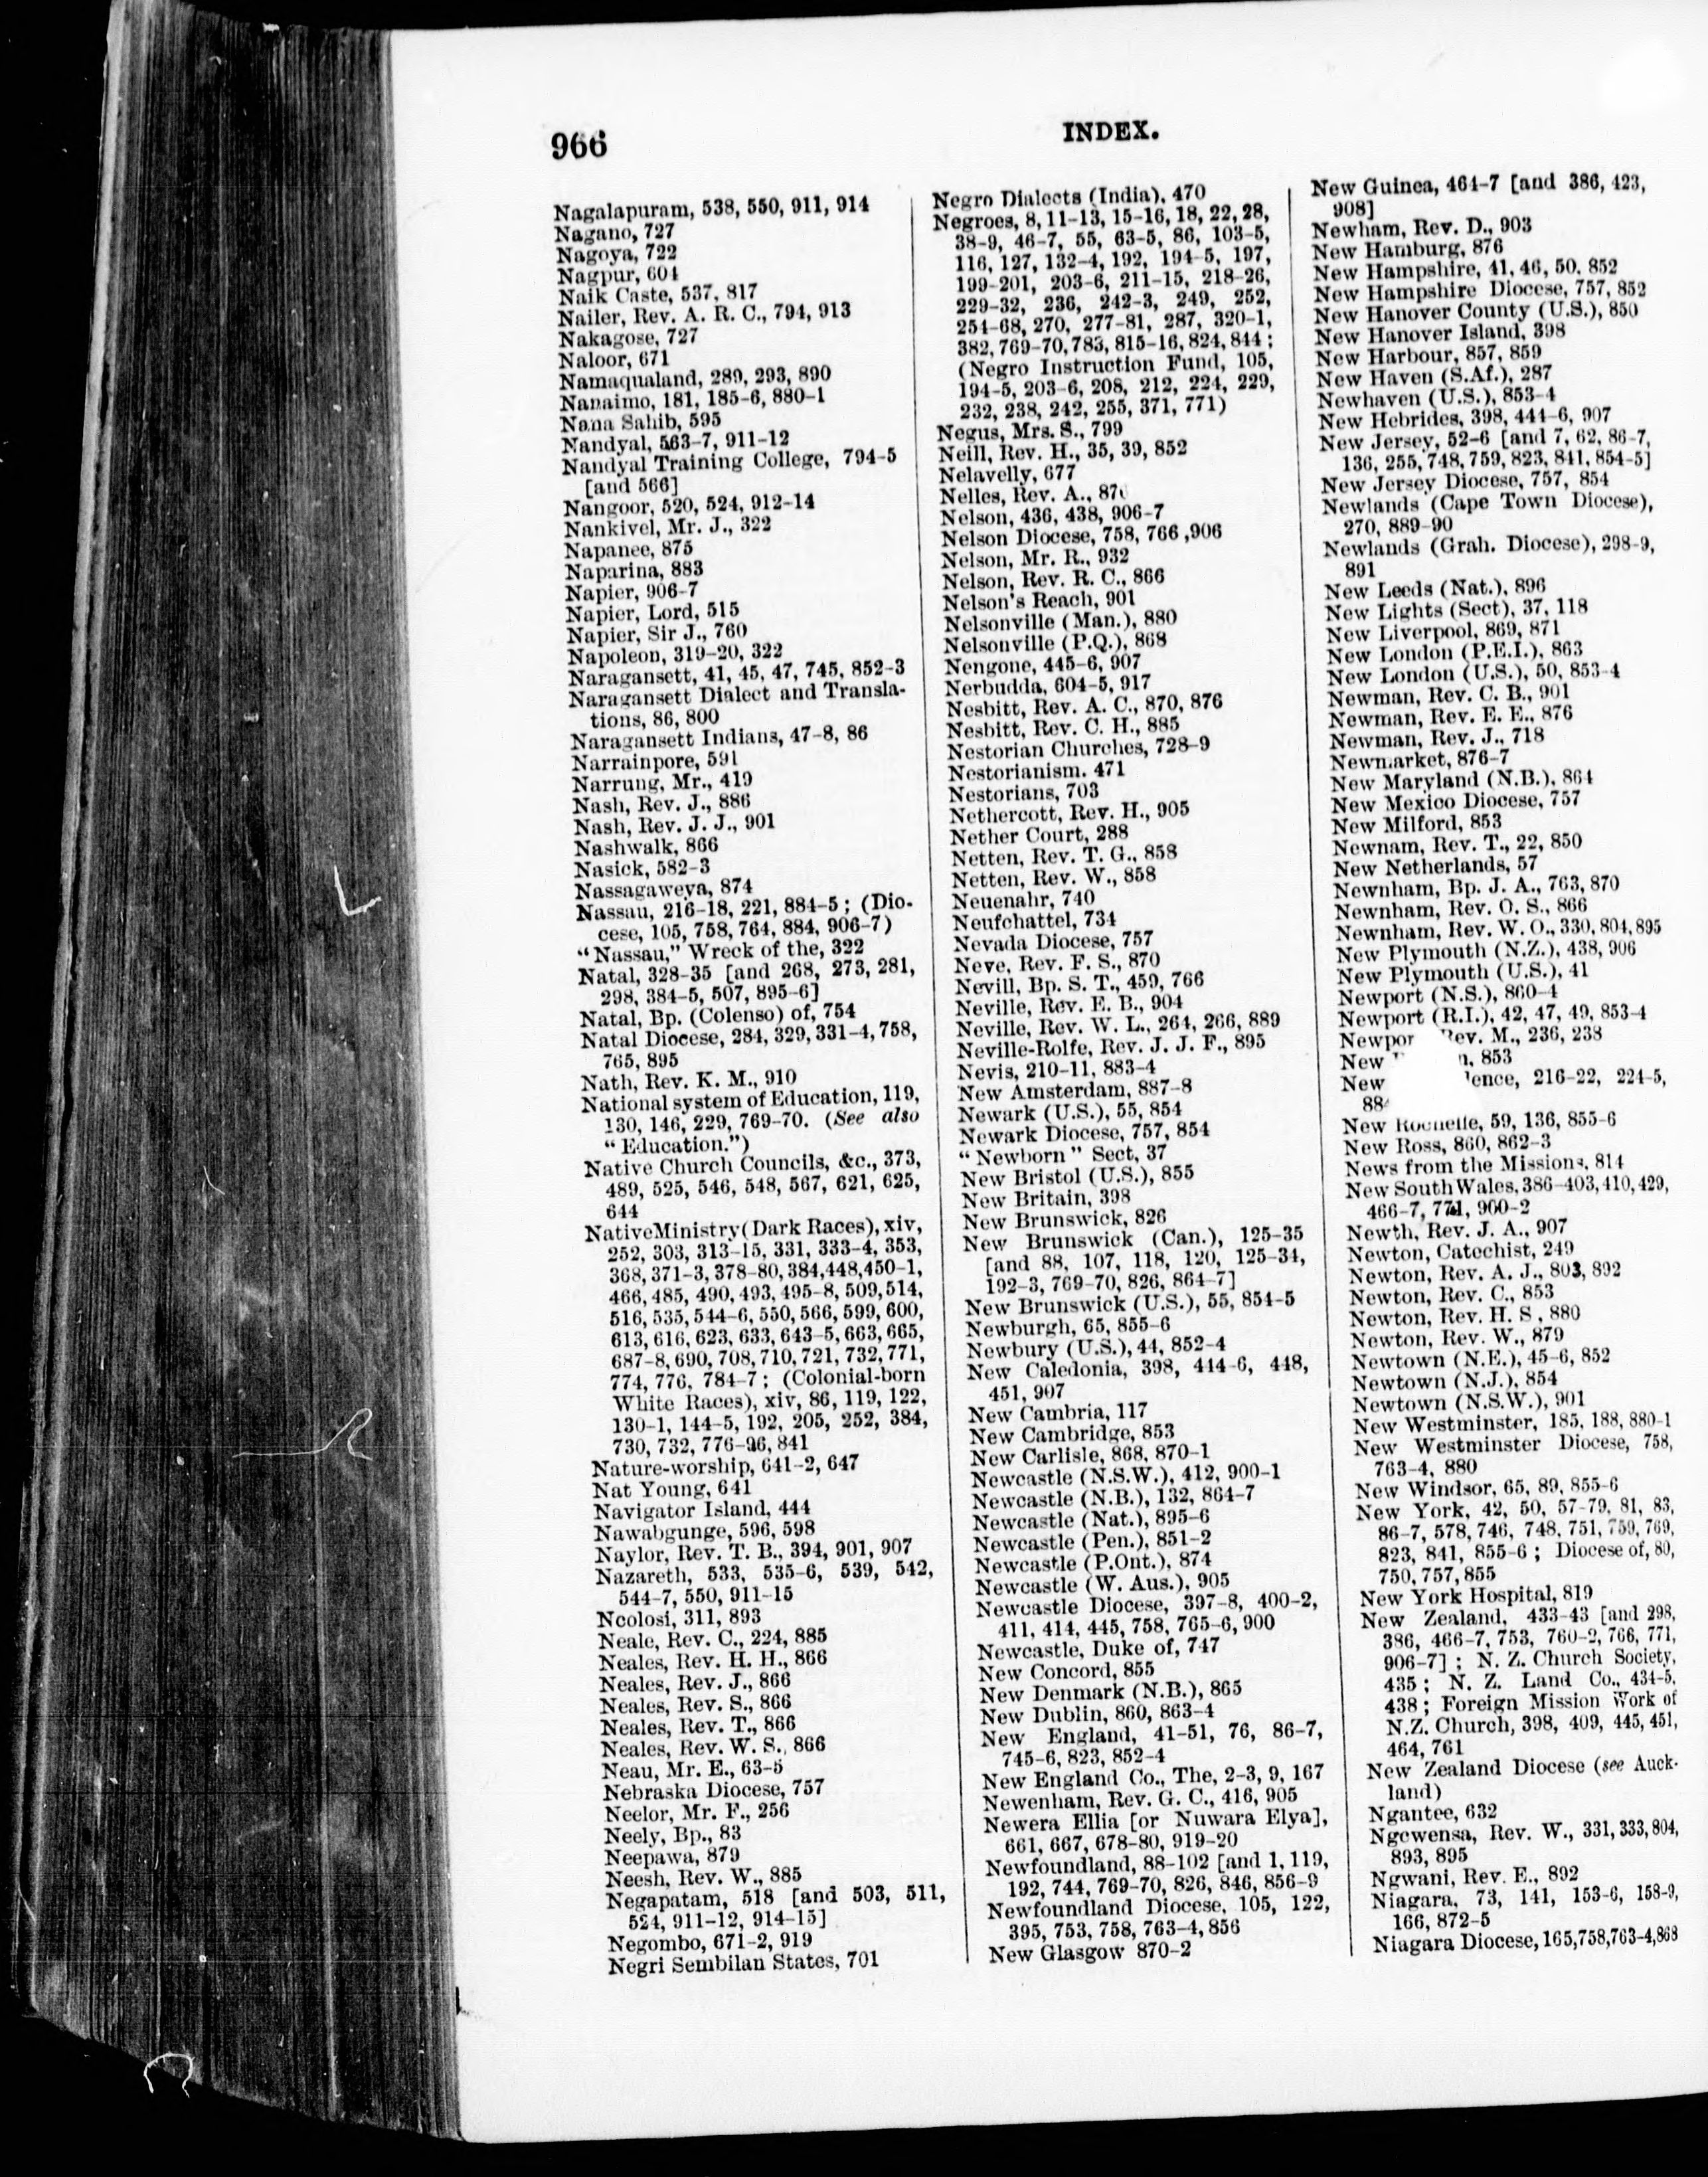 966
INDEX.
Nagalapuram, 538, 550, 911, 914
Nagano, 727
Nagoya, 722
Nagpur, 604
Naik Caste, 537, 817
Nailer, Rev. A. R. C., 794, 913
Nakagose, 727
Naloor, 671
Namaqualand, 289, 293, 890
Nanaimo, 181, 185-6, 880-1
Nana Sahib, 595
Nandyal, 563-7, 911-12
Nandyal Training College, 794-5
[and 566]
Nangoor, 520, 524, 912-14
Nankivel, Mr. J., 322
Napanee, 875
Naparina, 883
Napier, 906-7
Napier, Lord, 515
Napier, Sir J., 760
Napoleon, 319-20, 322
Naragansett, 41, 45, 47, 745, 852-3
Naragansett Dialect and Transla-
tions, 86, 800
Naragansett Indians, 47-8, 86
Narrainpore, 591
Narrung, Mr., 419
Nash, Rev. J., 886
Nash, Rev. J. J., 901
Nashwalk, 866
Nasick, 582-3
Nassagaweya, 874
Nassau, 216-18, 221, 884-5; (Dio-
cese, 105, 758, 764, 884, 906-7)
"Nassau," Wreck of the, 322
Natal, 328-35 [and 268, 273, 281,
298, 384-5, 507, 895-6]
Natal, Bp. (Colenso) of, 754
Natal Diocese, 284, 329, 331-4, 758,
765, 895
Nath, Rev. K. M., 910
National system of Education, 119,
130, 146, 229, 769-70. (See also
"Education.")
Native Church Councils, &c., 373,
489, 525, 546, 548, 567, 621, 625,
644
Native Ministry (Dark Races), xiv,
252, 303, 313-15, 331, 333-4, 353,
368, 371-3, 378-80, 384, 448, 450-1,
466, 485, 490, 493, 495-8, 509, 514,
516, 535, 544-6, 550, 566, 599, 600,
613, 616, 623, 633, 643-5, 663, 665,
687-8, 690, 708, 710, 721, 732, 771,
774, 776, 784-7; (Colonial-born
White Races), xiv, 86, 119, 122,
130-1, 144-5, 192, 205, 252, 384,
730, 732, 776-96, 841
Nature-worship, 641-2, 647
Nat Young, 641
Navigator Island, 444
Nawabgunge, 596, 598
Naylor, Rev. T. B., 394, 901, 907
Nazareth, 533, 535-6, 539, 542,
544-7, 550, 911-15
Ncolosi, 311, 893
Neale, Rev. C., 224, 885
Neales, Rev. H. H., 866
Neales, Rev. J., 866
Neales, Rev. S., 866
Neales, Rev. T., 866
Neales, Rev. W. S., 866
Neau, Mr. E., 63-5
Nebraska Diocese, 757
Neelor, Mr. F., 256
Neely, Bp., 83
Neepawa, 879
Neesh, Rev. W., 885
Negapatam, 518 [and 503, 511,
524, 911-12, 914-15]
Negombo, 671-2, 919
Negri Sembilan States, 701
Negro Dialects (India), 470
Negroes, 8, 11-13, 15-16, 18, 22, 28,
38-9, 46-7, 55, 63-5, 86, 103-5,
116, 127, 132-4, 192, 194-5, 197,
199-201, 203-6, 211-15, 218-26,
229-32, 236, 242-3, 249, 252,
254-68, 270, 277-81, 287, 320-1,
382, 769-70, 783, 815-16, 824, 844;
(Negro Instruction Fund, 105,
194-5, 203-6, 208, 212, 224, 229,
232, 238, 242, 255, 371, 771)
Negus, Mrs. S., 799
Neill, Rev. H., 35, 39, 852
Nelavelly, 677
Nelles, Rev. A., 87
Nelson, 436, 438, 906-7
Nelson Diocese, 758, 766 ,906
Nelson, Mr. R., 932
Nelson, Rev. R. C., 866
Nelson's Reach, 901
Nelsonville (Man.), 880
Nelsonville (P.Q.), 868
Nengone, 445-6, 907
Nerbudda, 604-5, 917
Nesbitt, Rev. A. C., 870, 876
Nesbitt, Rev. C. H., 885
Nestorian Churches, 728-9
Nestorianism. 471
Nestorians, 703
Nethercott, Rev. H., 905
Nether Court, 288
Netten, Rev. T. G., 858
Netten, Rev. W., 858
Neuenahr, 740
Neufchattel, 734
Nevada Diocese, 757
Neve, Rev. F. S., 870
Nevill, Bp. S. T., 459, 766
Neville, Rev. E. B., 904
Neville, Rev. W. L., 264, 266, 889
Neville-Rolfe, Rev. J. J. F., 895
Nevis, 210-11, 883-4
New Amsterdam, 887-8
Newark (U.S.), 55, 854
Newark Diocese, 757, 854
"Newborn" Sect, 37
New Bristol (U.S.), 855
New Britain, 398
New Brunswick, 826
New Brunswick (Can.), 125-35
[and 88, 107, 118, 120, 125-34,
192-3, 769-70, 826, 864-7]
New Brunswick (U.S.), 55, 854-5
Newburgh, 65, 855-6
Newbury (U.S.), 44, 852-4
New Caledonia, 398, 444-6, 448,
451, 907
New Cambria, 117
New Cambridge, 853
New Carlisle, 868, 870-1
Newcastle (N.S.W.), 412, 900-1
Newcastle (N.B.), 132, 864-7
Newcastle (Nat.), 895-6
Newcastle (Pen.), 851-2
Newcastle (P.Ont.), 874
Newcastle (W. Aus.), 905
Newcastle Diocese, 397-8, 400-2,
411, 414, 445, 758, 765-6, 900
Newcastle, Duke of, 747
New Concord, 855
New Denmark (N.B.), 865
New Dublin, 860, 863-4
New England, 41-51, 76, 86-7,
745-6, 823, 852-4
New England Co., The, 2-3, 9, 167
Newenham, Rev. G. C., 416, 905
Newera Ellia [or Nuwara Elya],
661, 667, 678-80, 919-20
Newfoundland, 88-102 [and 1, 119,
192, 744, 769-70, 826, 846, 856-9
Newfoundland Diocese, 105, 122,
395, 753, 758, 763-4, 856
New Glasgow 870-2
New Guinea, 464-7 [and 386, 423,
908]
Newham, Rev. D., 903
New Hamburg, 876
New Hampshire, 41, 46, 50. 852
New Hampshire Diocese, 757, 852
New Hanover County (U.S.), 850
New Hanover Island, 398
New Harbour, 857, 859
New Haven (S.Af.), 287
Newhaven (U.S.), 853-4
New Hebrides, 398, 444-6, 907
New Jersey, 52-6 [and 7, 62, 86-7,
136, 255, 748, 759, 823, 841, 854-5]
New Jersey Diocese, 757, 854
Newlands (Cape Town Diocese),
270, 889-90
Newlands (Grah. Diocese), 298-9,
891
New Leeds (Nat.), 896
New Lights (Sect), 37, 118
New Liverpool, 869, 871
New London (P.E.I.), 863
New London (U.S.), 50, 853-4
Newman, Rev. C. B., 901
Newman, Rev. E. E., 876
Newman, Rev. J., 718
Newmarket, 876-7
New Maryland (N.B.), 864
New Mexico Diocese, 757
New Milford, 853
Newnam, Rev. T., 22, 850
New Netherlands, 57
Newnham, Bp. J. A., 763, 870
Newnham, Rev. O. S., 866
Newnham, Rev. W. O., 330, 804, 895
New Plymouth (N.Z.), 438, 906
New Plymouth (U.S.), 41
Newport (N.S.), 860-4
Newport (R.I.), 42, 47, 49, 853-4
Newpor Rev. M., 236, 238
New n, 853
New ence, 216-22, 224-5,
88
New Rochelle, 59, 136, 855-6
New Ross, 860, 862-3
News from the Missions, 814
New South Wales, 386-403, 410, 429,
466-7, 771, 900-2
Newth, Rev. J. A., 907
Newton, Catechist, 249
Newton, Rev. A. J., 803, 892
Newton, Rev. C., 853
Newton, Rev. H. S , 880
Newton, Rev. W., 879
Newtown (N.E.), 45-6, 852
Newtown (N.J.), 854
Newtown (N.S.W.), 901
New Westminster, 185, 188, 880-1
New Westminster Diocese, 758,
763-4, 880
New Windsor, 65, 89, 855-6
New York, 42, 50, 57-79, 81, 83,
86-7, 578, 746, 748, 751, 759, 769,
823, 841, 855-6; Diocese of, 80,
750, 757, 855
New York Hospital, 819
New Zealand, 433-43 [and 298,
386, 466-7, 753, 760-2, 766, 771,
906-7]; N. Z. Church Society,
435; N. Z. Land Co., 434-5,
438; Foreign Mission Work of
N.Z. Church, 398, 409, 445, 451,
464, 761
New Zealand Diocese (see Auck-
land)
Ngantee, 632
Ngewensa, Rev. W., 331, 333, 804,
893, 895
Ngwani, Rev. E., 892
Niagara, 73, 141, 153-6, 158-9,
166, 872-5
Niagara Diocese, 165, 758, 763-4, 868